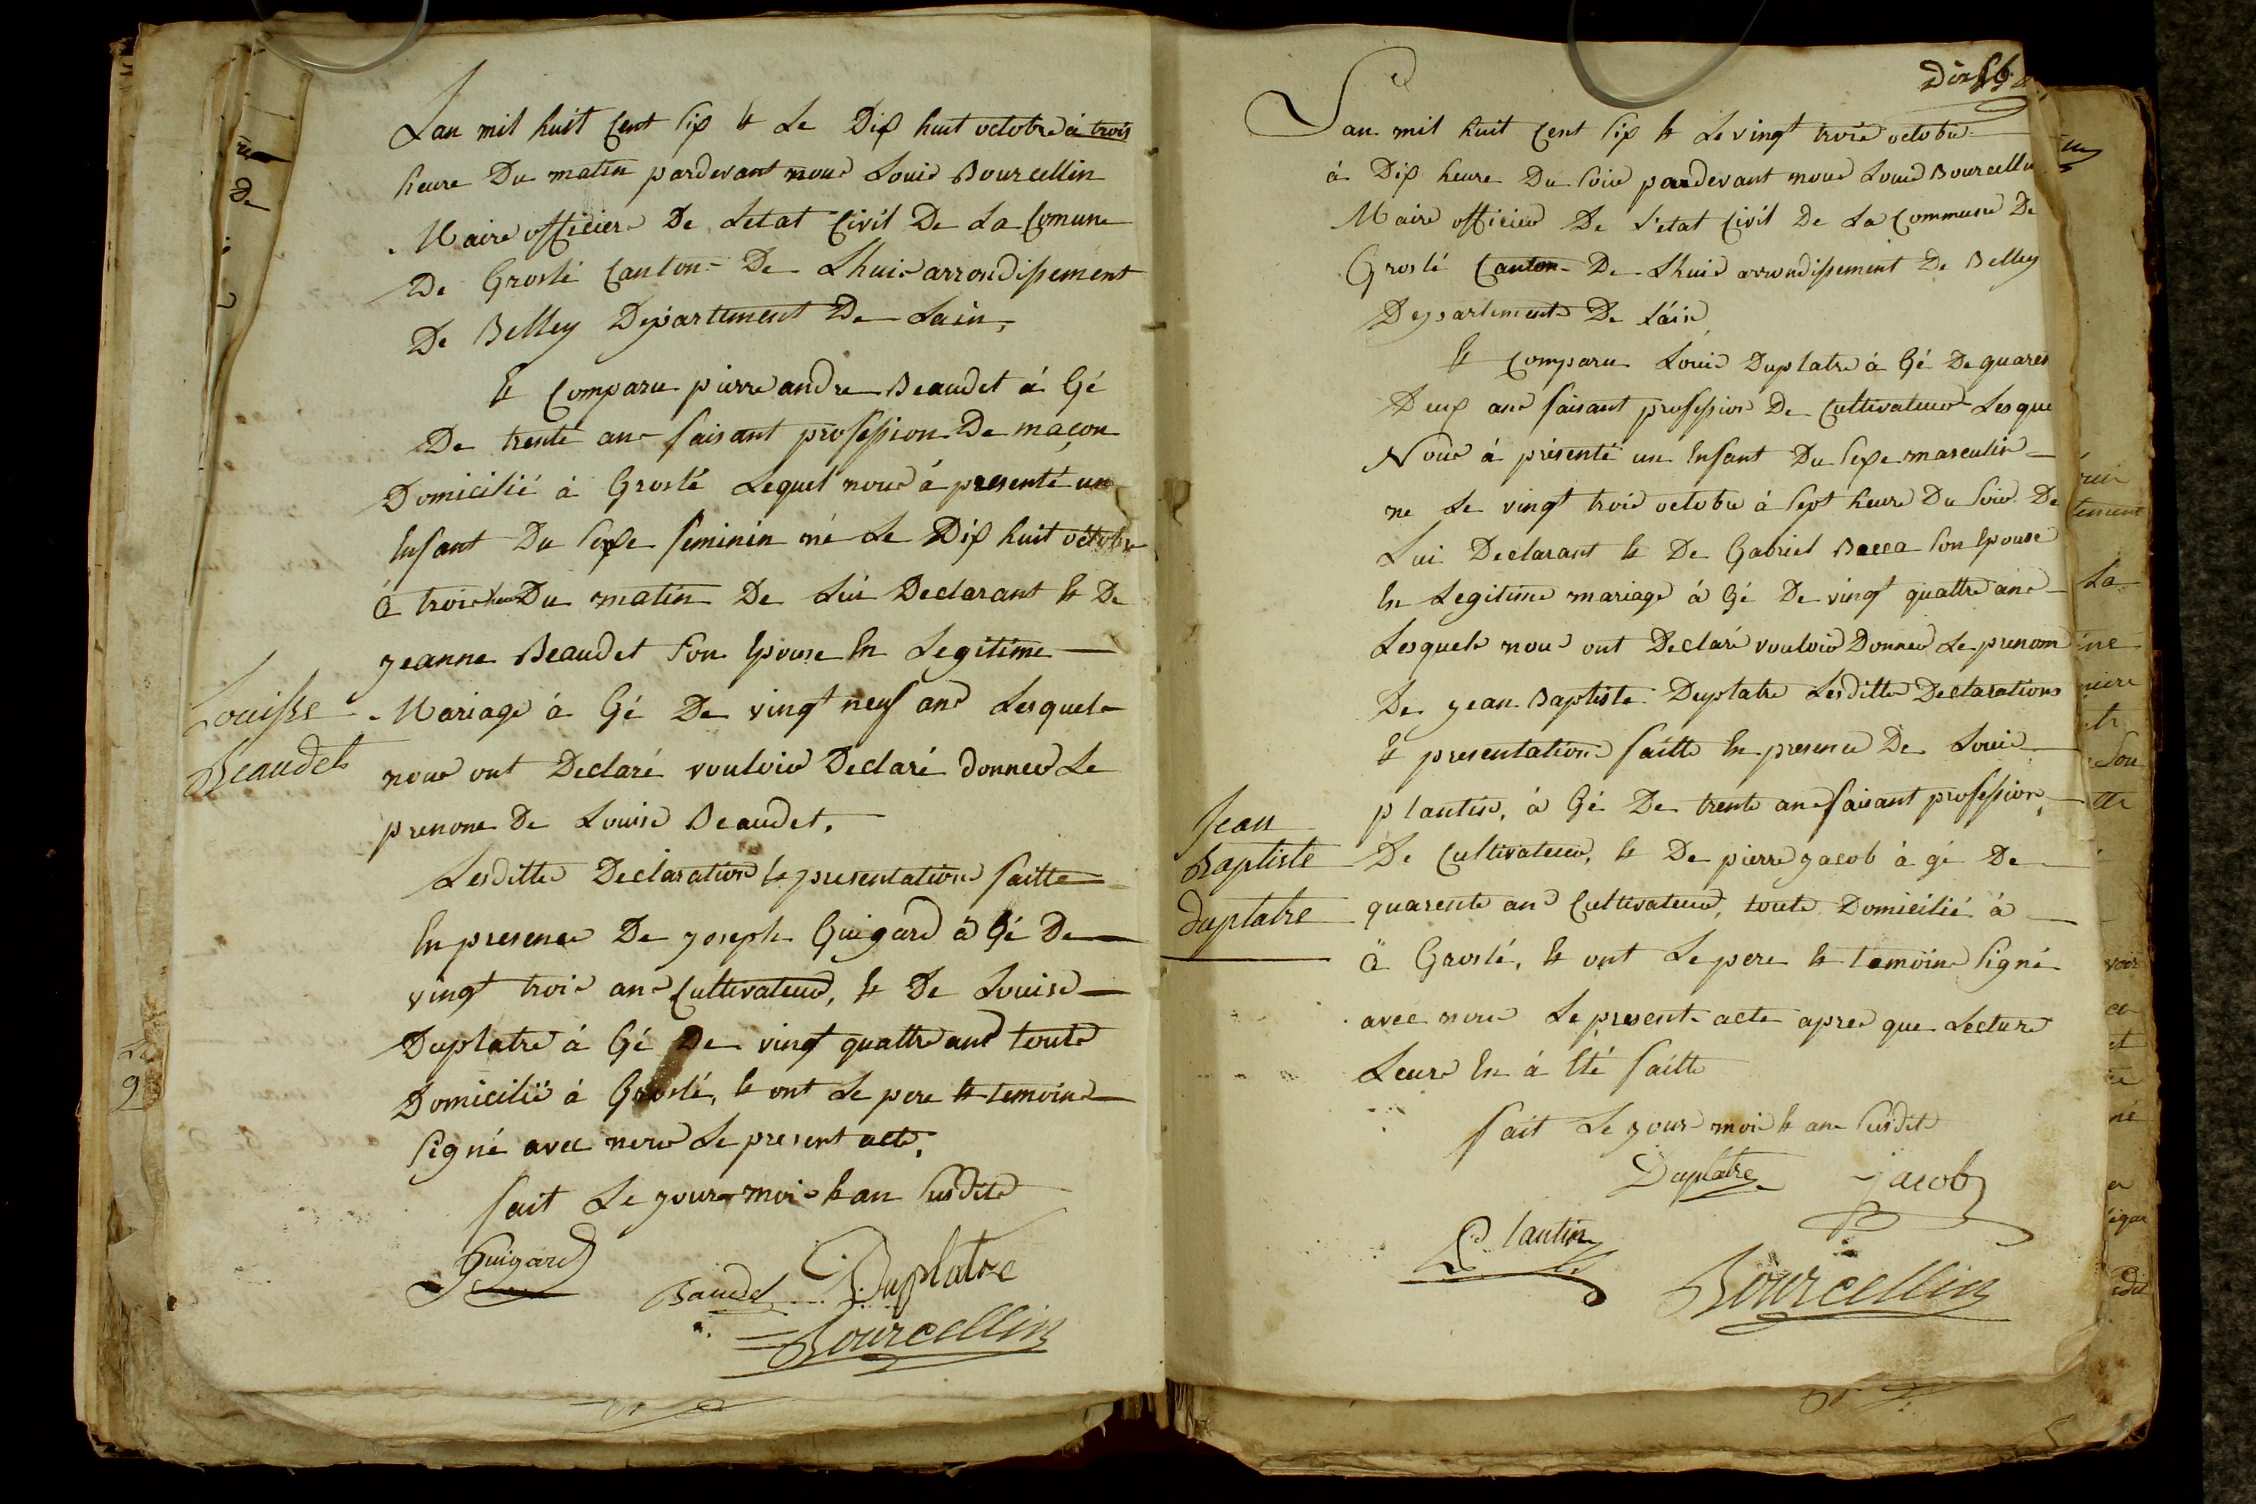 Lan mil huit Cent Six & Le Dix huit octobre à trois
heure Du matin pardevant nous Louis Bourcellin
Maire officier De Letat Civil De La Comune
De Groslé Canton De Lhuis arrondissement
De Belley Département De Lain,
Et Comparu pierre andre Beaudet á Gé
De trente ans faisant profession De maçon
Domicilié à Groslé Lequel nous á presenté un
Enfant Du Sexe feminin né Le Dix huit octobre
à trois heure Du matin De Lui Declarant Et De
jeanne Beaudet Son Epouse En Legitime
Louisse
Beaudet
Mariage à Gé De vingt neuf ans Lesquels
nous ont Declaré vouloir Declaré donner Le
prenom De Louise Beaudet,
Lesditte Declaration Et presentation faitte
En presence De joseph Guigard à Gé De
vingt trois ans Cultivateur, Et De Louise
Duplatre á Gé De vingt quattre ans toute
Domicilié à Groslé, Et ont Le pere Et temoins
Signé avec nous Le present acte,
fait Le jour mois Et an Susdits
Guigard
Baudet Duplatre
Bourcellin
Lan mil huit Cent Six Et Le vingt trois octobre
á Dix heure Du Soir pardevant nous Louis Bourcellin
Maire officier De L'etat Civil De La Commune De
Groslé Canton De Lhuis arrondissement De Belley
Departement De L'ain
Et Comparu Louis Duplatre à Gé De quarent
Deux ans faisant profession De Cultivateur Lesque
Nous á présenté un Enfant Du Sexe masculin
ne Le vingt trois octobre á Sept heure Du Soir De
Lui Declarant Et De Gabriel Bacca Son Epouse
En Legitime mariage á Gé De vingt quattre ans
Lesquels nous ont Declaré vouloir Donner Le prenom
De jean Baptiste Duplatre Lesditte Declarations
Et presentations faitte En presence De Louis
Jean
Baptiste
duplatre
plantin, á Gé De trente ans faisant profession
De Cultivateur, Et De pierre jacob à gé De
quarente ans Cultivateur, toute Domicilié à
à Groslé, Et ont Le pere Et temoins Signé
avec nous Le present acte apres que Lecture
Leurs En á Eté faitte
fait Le jour mois Et an Susdits
Duplatre Jacob
Plantin
Bourcellin